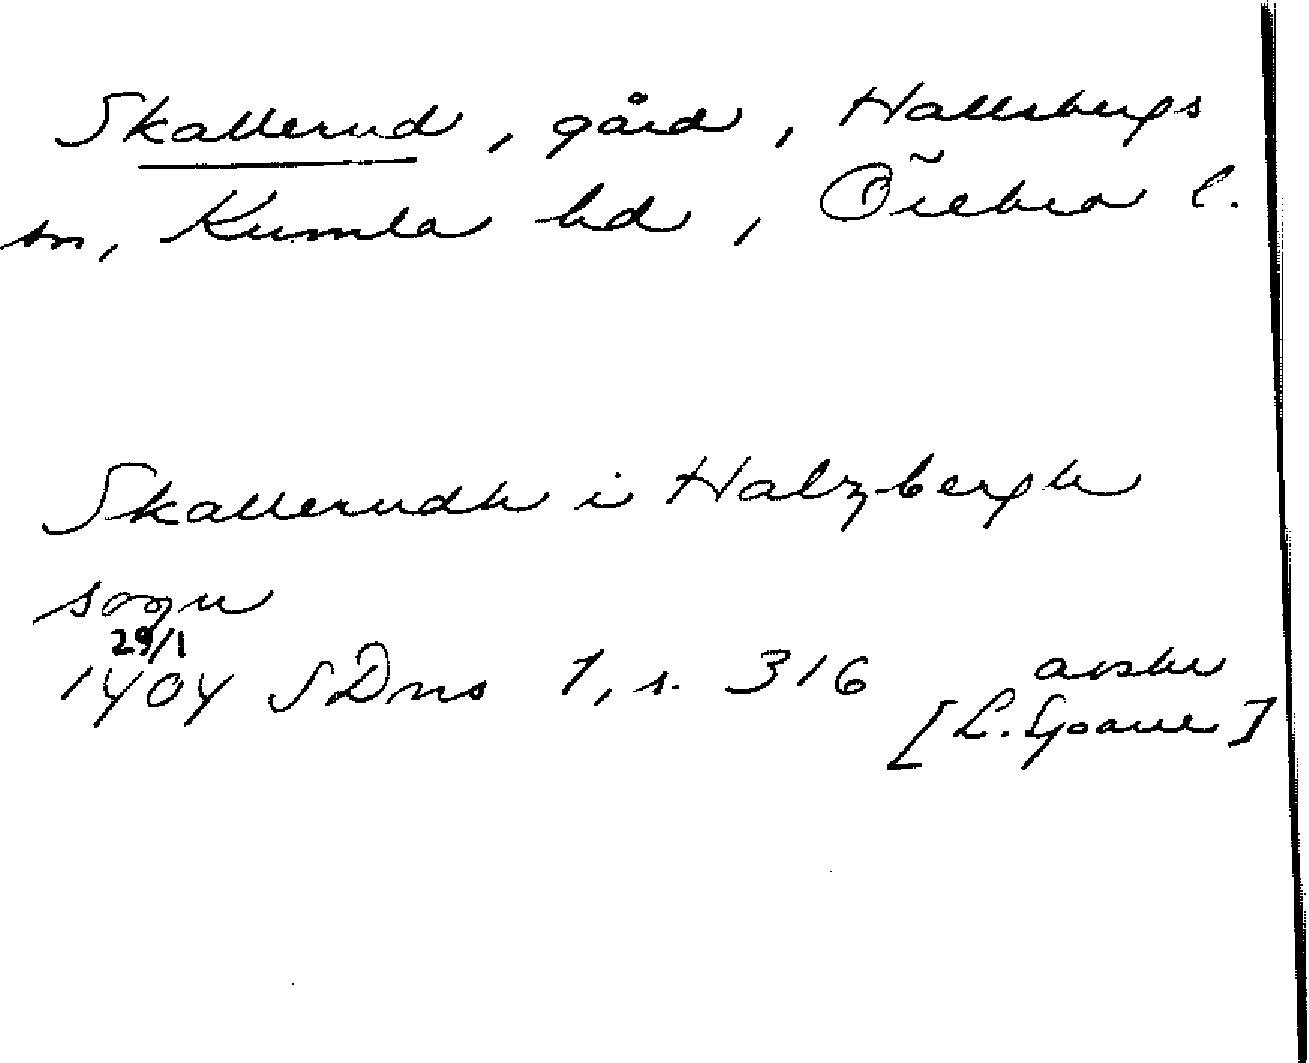 Skallerud, gård, Hallsbergs
sn, Kumla hd, Örebro l.
Skallerudh i Halzbergh
sogn
29/1
1404 SDns 1, s. 316 avskr
[L. Goane]